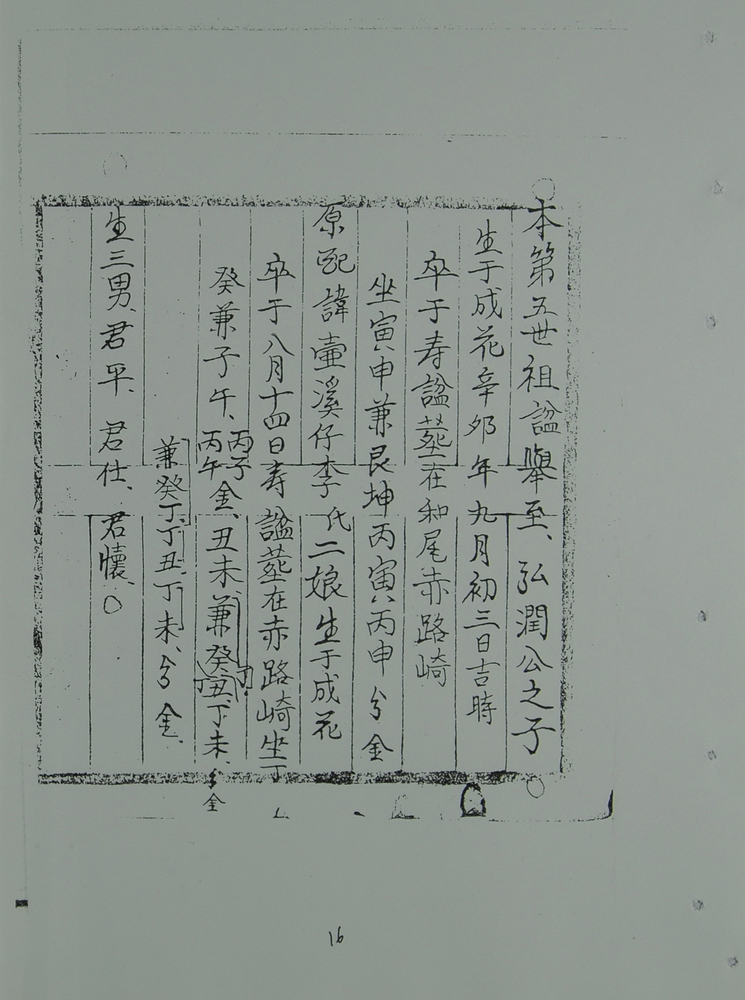 本第五世祖諡舉至、弘潤公之子
生于成花辛夘年九月初三日吉時
卒于寿諡葬在和尾赤路崎
坐寅申兼艮坤丙寅丙申分金
原配諱壷溪仔李氏二娘生于成花
卒于八月十四日寿諡葬在赤路崎坐丁
癸兼子午、丙子丙午金、丑未兼癸丁丑丁未、分金
兼癸丁丁丑丁未、分金、
生三男、君平、君仕、君懷、○
16